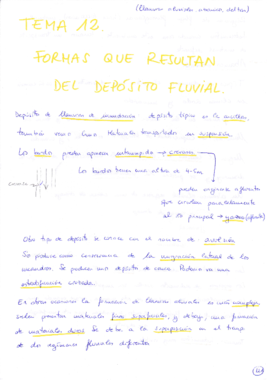 TEMA 12.
FORMAS QUE RESULTAN
DEL DEPÓSITO FLUVIAL.
Depósito de llanura de inundación depósito típico en la
también son transportados en suspensión.
Los bordes pueden aparecer →
Los bordes tienen una altura de
pueden originar afluentes
que circulan paralelamente
al río principal → yazoo (afluente)
Otro tipo de depósito se conoce con el nombre de
Se produce como consecuencia de la migración lateral de los
meandros. Se produce un depósito de arena. Podemos ver una
estratificación cruzada.
En otras ocasiones la formación de llanuras aluviales es más compleja,
suelen presentar materiales finos superficiales, y debajo, una formación
de materiales duros. Se debe a la superposición en el tiempo
de dos regímenes fluviales diferentes.